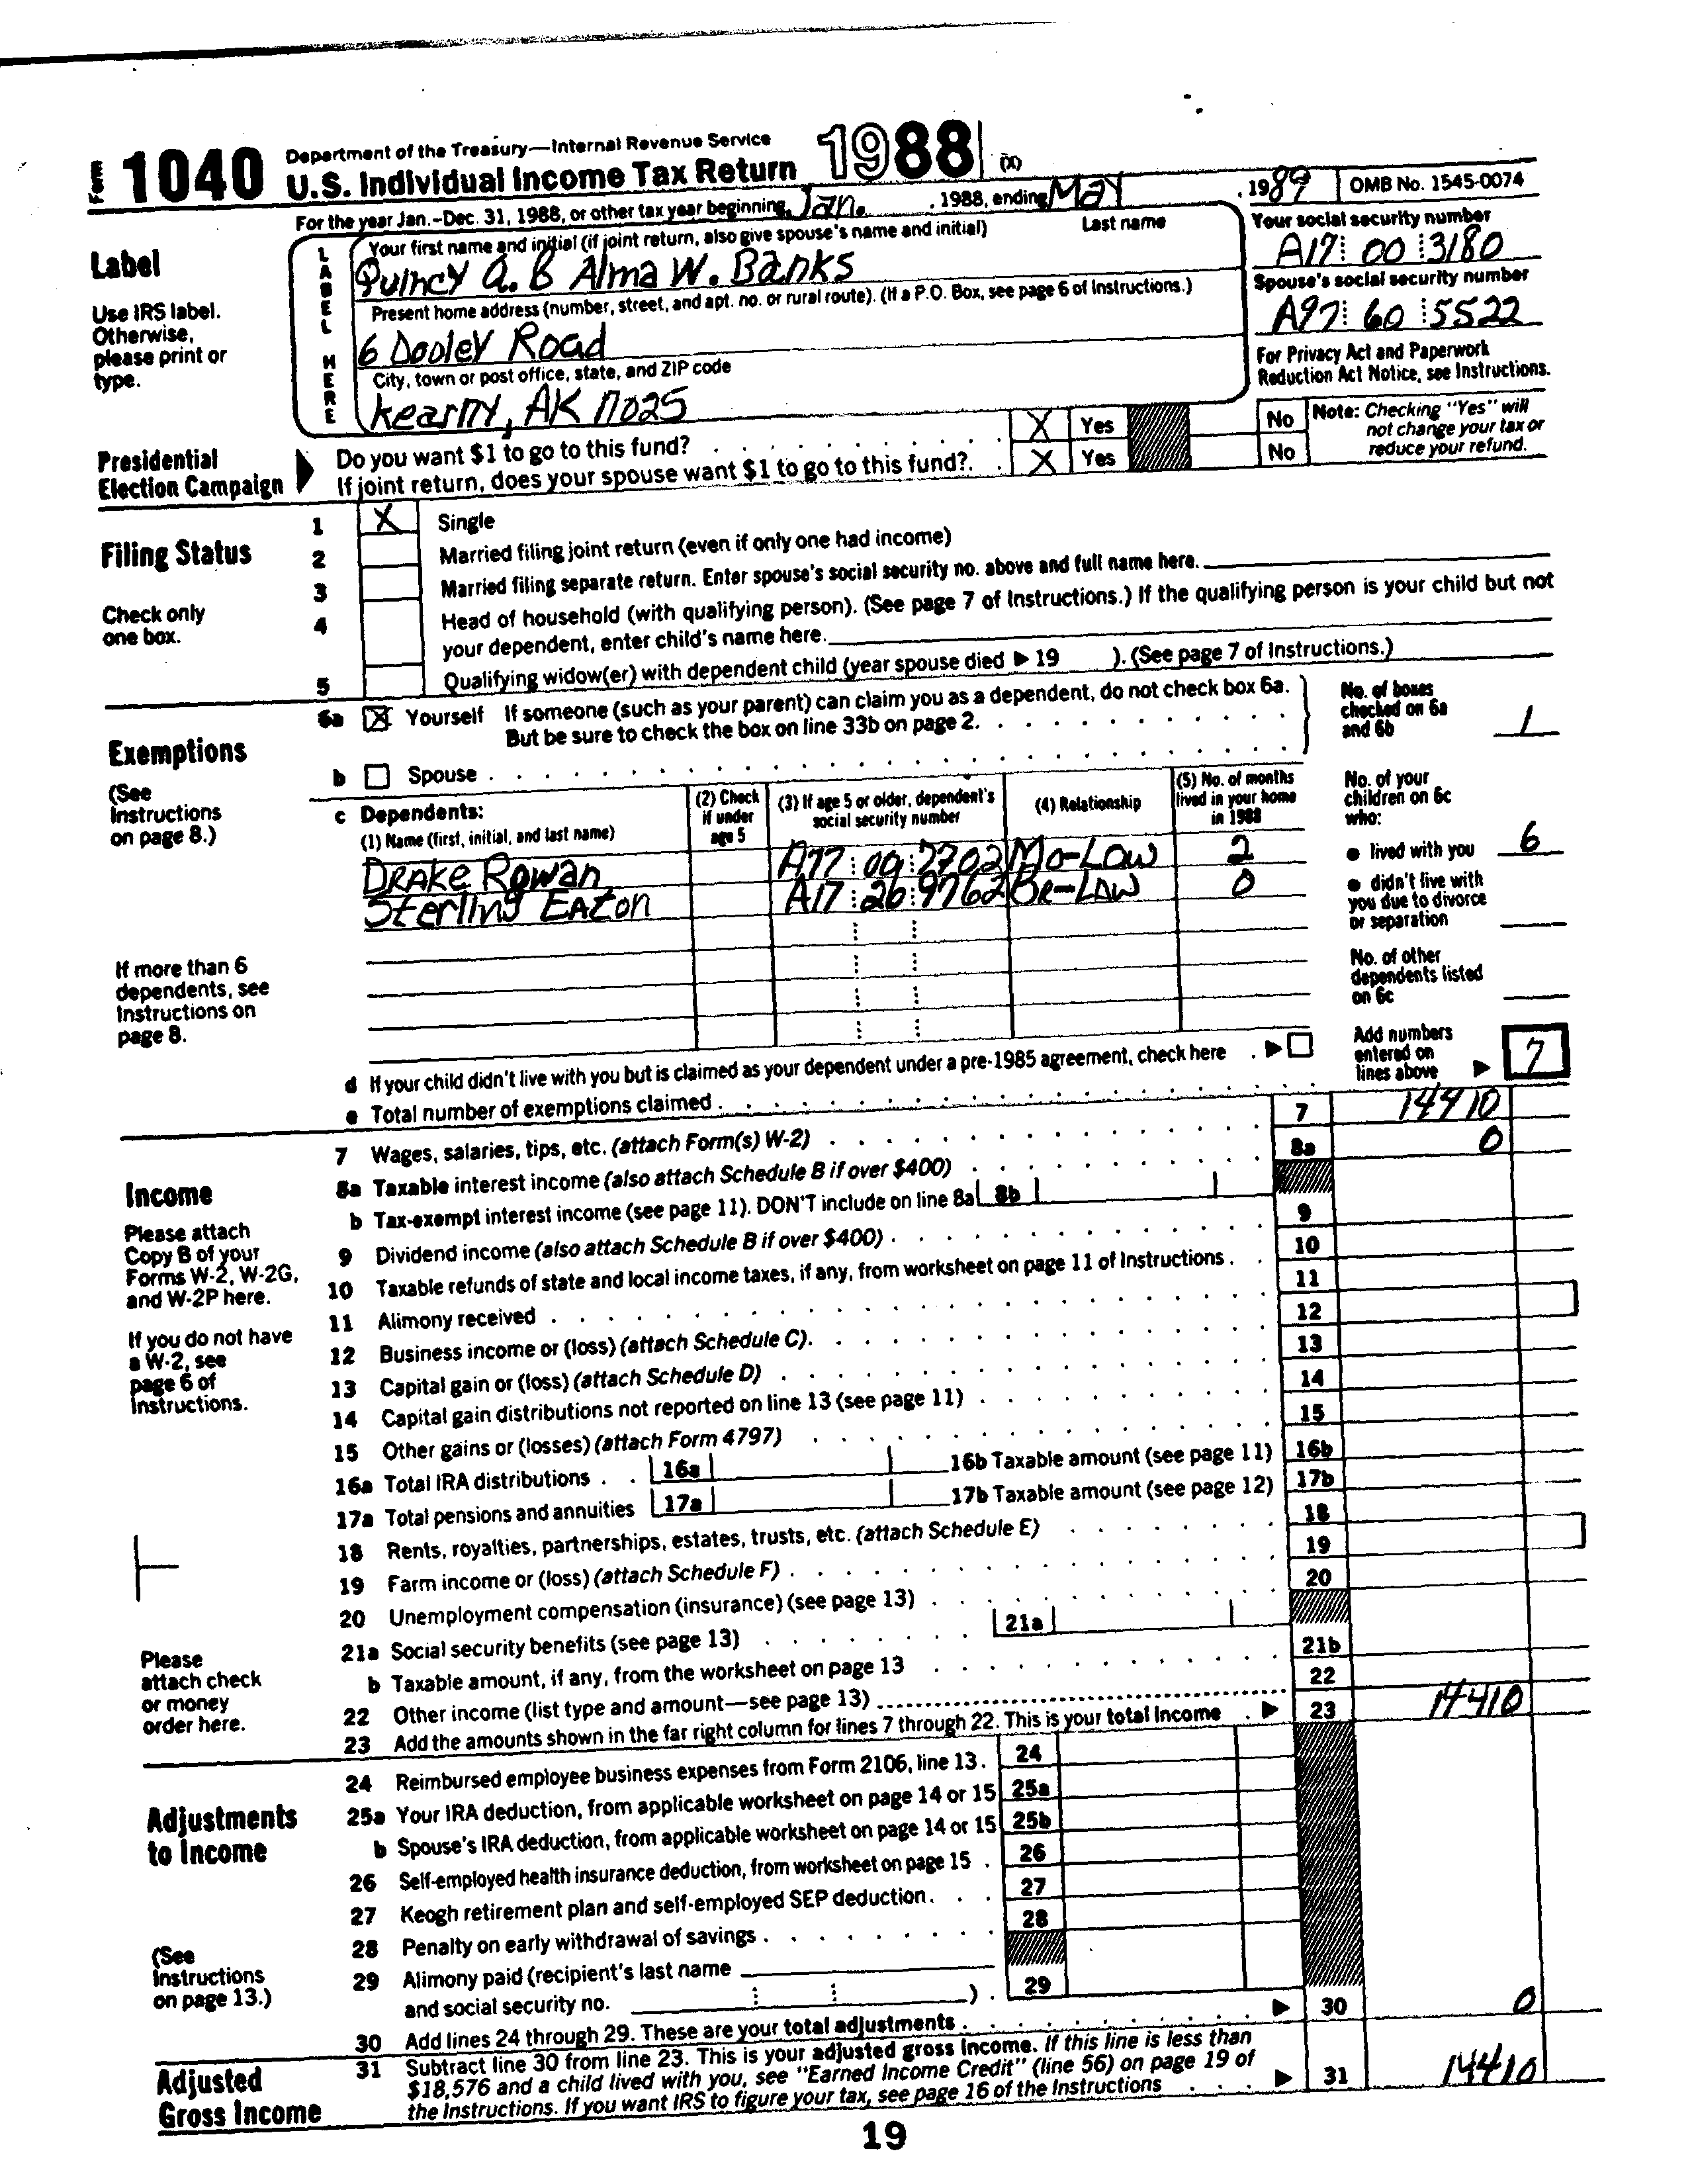 Form 1040 Department of the Treasury—Internal Revenue Service
U.S. Individual Income Tax Return 1988 (X)
For the year Jan.-Dec. 31, 1988, or other tax year beginning Jan. , 1988, ending May , 1989 OMB No. 1545-0074
Label
Use IRS label. Otherwise, please print or type.
LABEL HERE
Your first name and initial (if joint return, also give spouse's name and initial) Last name
Quincy A. B Alma W. Banks
Your social security number
A17 00 3180
Present home address (number, street, and apt. no. or rural route). (If a P.O. Box, see page 6 of Instructions.)
6 Dooley Road
Spouse's social security number
A97 60 5522
City, town or post office, state, and ZIP code
Kearny, AK 11025
For Privacy Act and Paperwork Reduction Act Notice, see Instructions.
Presidential Election Campaign
Do you want $1 to go to this fund? X Yes No
If joint return, does your spouse want $1 to go to this fund? X Yes No
Note: Checking "Yes" will not change your tax or reduce your refund.
Filing Status
Check only one box.
1 X Single
2 Married filing joint return (even if only one had income)
3 Married filing separate return. Enter spouse's social security no. above and full name here.
4 Head of household (with qualifying person). (See page 7 of Instructions.) If the qualifying person is your child but not
your dependent, enter child's name here.
5 Qualifying widow(er) with dependent child (year spouse died ▶ 19 ). (See page 7 of Instructions.)
Exemptions
(See Instructions on page 8.)
6a X Yourself If someone (such as your parent) can claim you as a dependent, do not check box 6a.
But be sure to check the box on line 33b on page 2.
b Spouse
No. of boxes checked on 6a and 6b 1
c Dependents:
(1) Name (first, initial, and last name)
(2) Check if under age 5
(3) If age 5 or older, dependent's social security number
(4) Relationship
(5) No. of months lived in your home in 1988
Drake Rowan A77 09 7702 Mo-Low 2
Sterling Eaton A17 26 9762 Br-Law 0
No. of your children on 6c who:
● lived with you 6
● didn't live with you due to divorce or separation
No. of other dependents listed on 6c
If more than 6 dependents, see Instructions on page 8.
d If your child didn't live with you but is claimed as your dependent under a pre-1985 agreement, check here ▶
e Total number of exemptions claimed
Add numbers entered on lines above ▶ 7
Income
Please attach Copy B of your Forms W-2, W-2G, and W-2P here.
If you do not have a W-2, see page 6 of Instructions.
Please attach check or money order here.
7 Wages, salaries, tips, etc. (attach Form(s) W-2) 7 14410
8a Taxable interest income (also attach Schedule B if over $400) 8a 0
b Tax-exempt interest income (see page 11). DON'T include on line 8a 8b
9 Dividend income (also attach Schedule B if over $400) 9
10 Taxable refunds of state and local income taxes, if any, from worksheet on page 11 of Instructions 10
11 Alimony received 11
12 Business income or (loss) (attach Schedule C) 12
13 Capital gain or (loss) (attach Schedule D) 13
14 Capital gain distributions not reported on line 13 (see page 11) 14
15 Other gains or (losses) (attach Form 4797) 15
16a Total IRA distributions 16a 16b Taxable amount (see page 11) 16b
17a Total pensions and annuities 17a 17b Taxable amount (see page 12) 17b
18 Rents, royalties, partnerships, estates, trusts, etc. (attach Schedule E) 18
19 Farm income or (loss) (attach Schedule F) 19
20 Unemployment compensation (insurance) (see page 13) 20
21a Social security benefits (see page 13) 21a
b Taxable amount, if any, from the worksheet on page 13 21b
22 Other income (list type and amount—see page 13) 22
23 Add the amounts shown in the far right column for lines 7 through 22. This is your total income ▶ 23 14410
Adjustments to Income
(See Instructions on page 13.)
24 Reimbursed employee business expenses from Form 2106, line 13. 24
25a Your IRA deduction, from applicable worksheet on page 14 or 15 25a
b Spouse's IRA deduction, from applicable worksheet on page 14 or 15 25b
26 Self-employed health insurance deduction, from worksheet on page 15 26
27 Keogh retirement plan and self-employed SEP deduction 27
28 Penalty on early withdrawal of savings 28
29 Alimony paid (recipient's last name
and social security no. ) 29
30 Add lines 24 through 29. These are your total adjustments ▶ 30 0
Adjusted Gross Income
31 Subtract line 30 from line 23. This is your adjusted gross income. If this line is less than
$18,576 and a child lived with you, see "Earned Income Credit" (line 56) on page 19 of
the Instructions. If you want IRS to figure your tax, see page 16 of the Instructions ▶ 31 14410
19